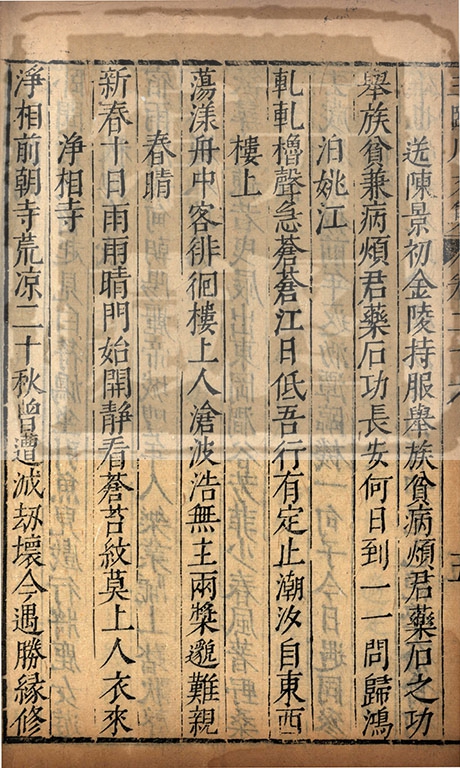 送陳景初金陵持服舉族貧病煩君藥石之功
舉族貧兼病煩君藥石功長安何日到一一問歸鴻
泊姚江
軋軋櫓聲急蒼蒼江日低吾行有定止潮汐自東西
樓上
蕩漾舟中客徘徊樓上人滄波浩無主兩槳邈難親
春晴
新春十日雨雨晴門始開靜看蒼苔紋莫上人衣來
淨相寺
淨相前朝寺荒凉二十秋曾遭滅劫壞今遇勝緣修